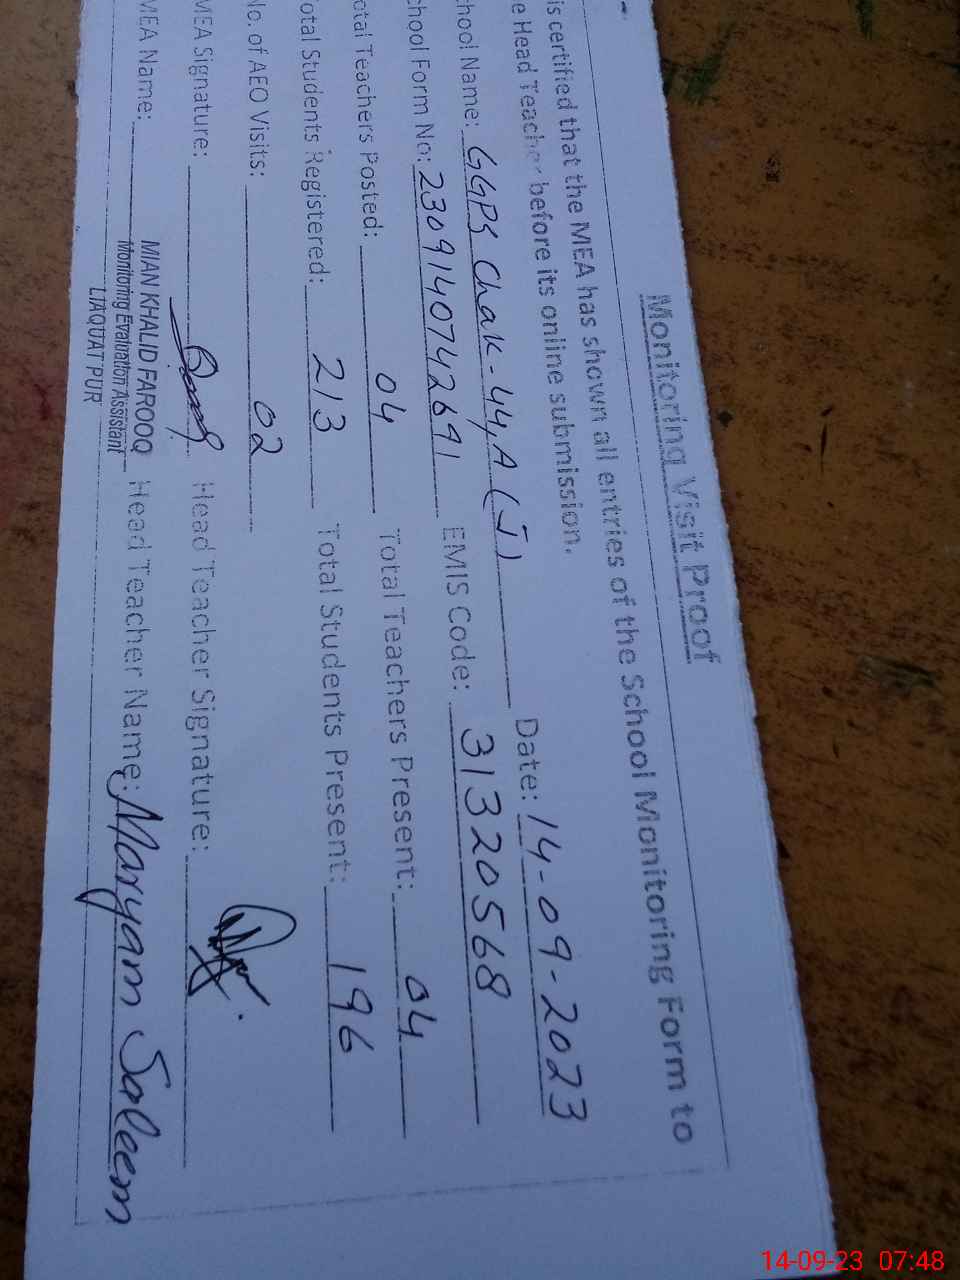 Monitoring Visit Proof
is certified that the MEA has shown all entries of the School Monitoring Form to
e Head Teacher before its online submission.
chool Name: GGPS Chak-44,A (J) Date: 14-09-2023
chool Form No: 2309140742691 EMIS Code: 31320568
otal Teachers Posted: 04 Total Teachers Present: 04
otal Students Registered: 213 Total Students Present: 196
No. of AEO Visits: 02
MEA Signature: Head Teacher Signature:
MEA Name: MIAN KHALID FAROOQ Head Teacher Name: Maryam Saleem
Monitoring Evaluation Assistant
LIAQUAT PUR
14-09-23 07:48